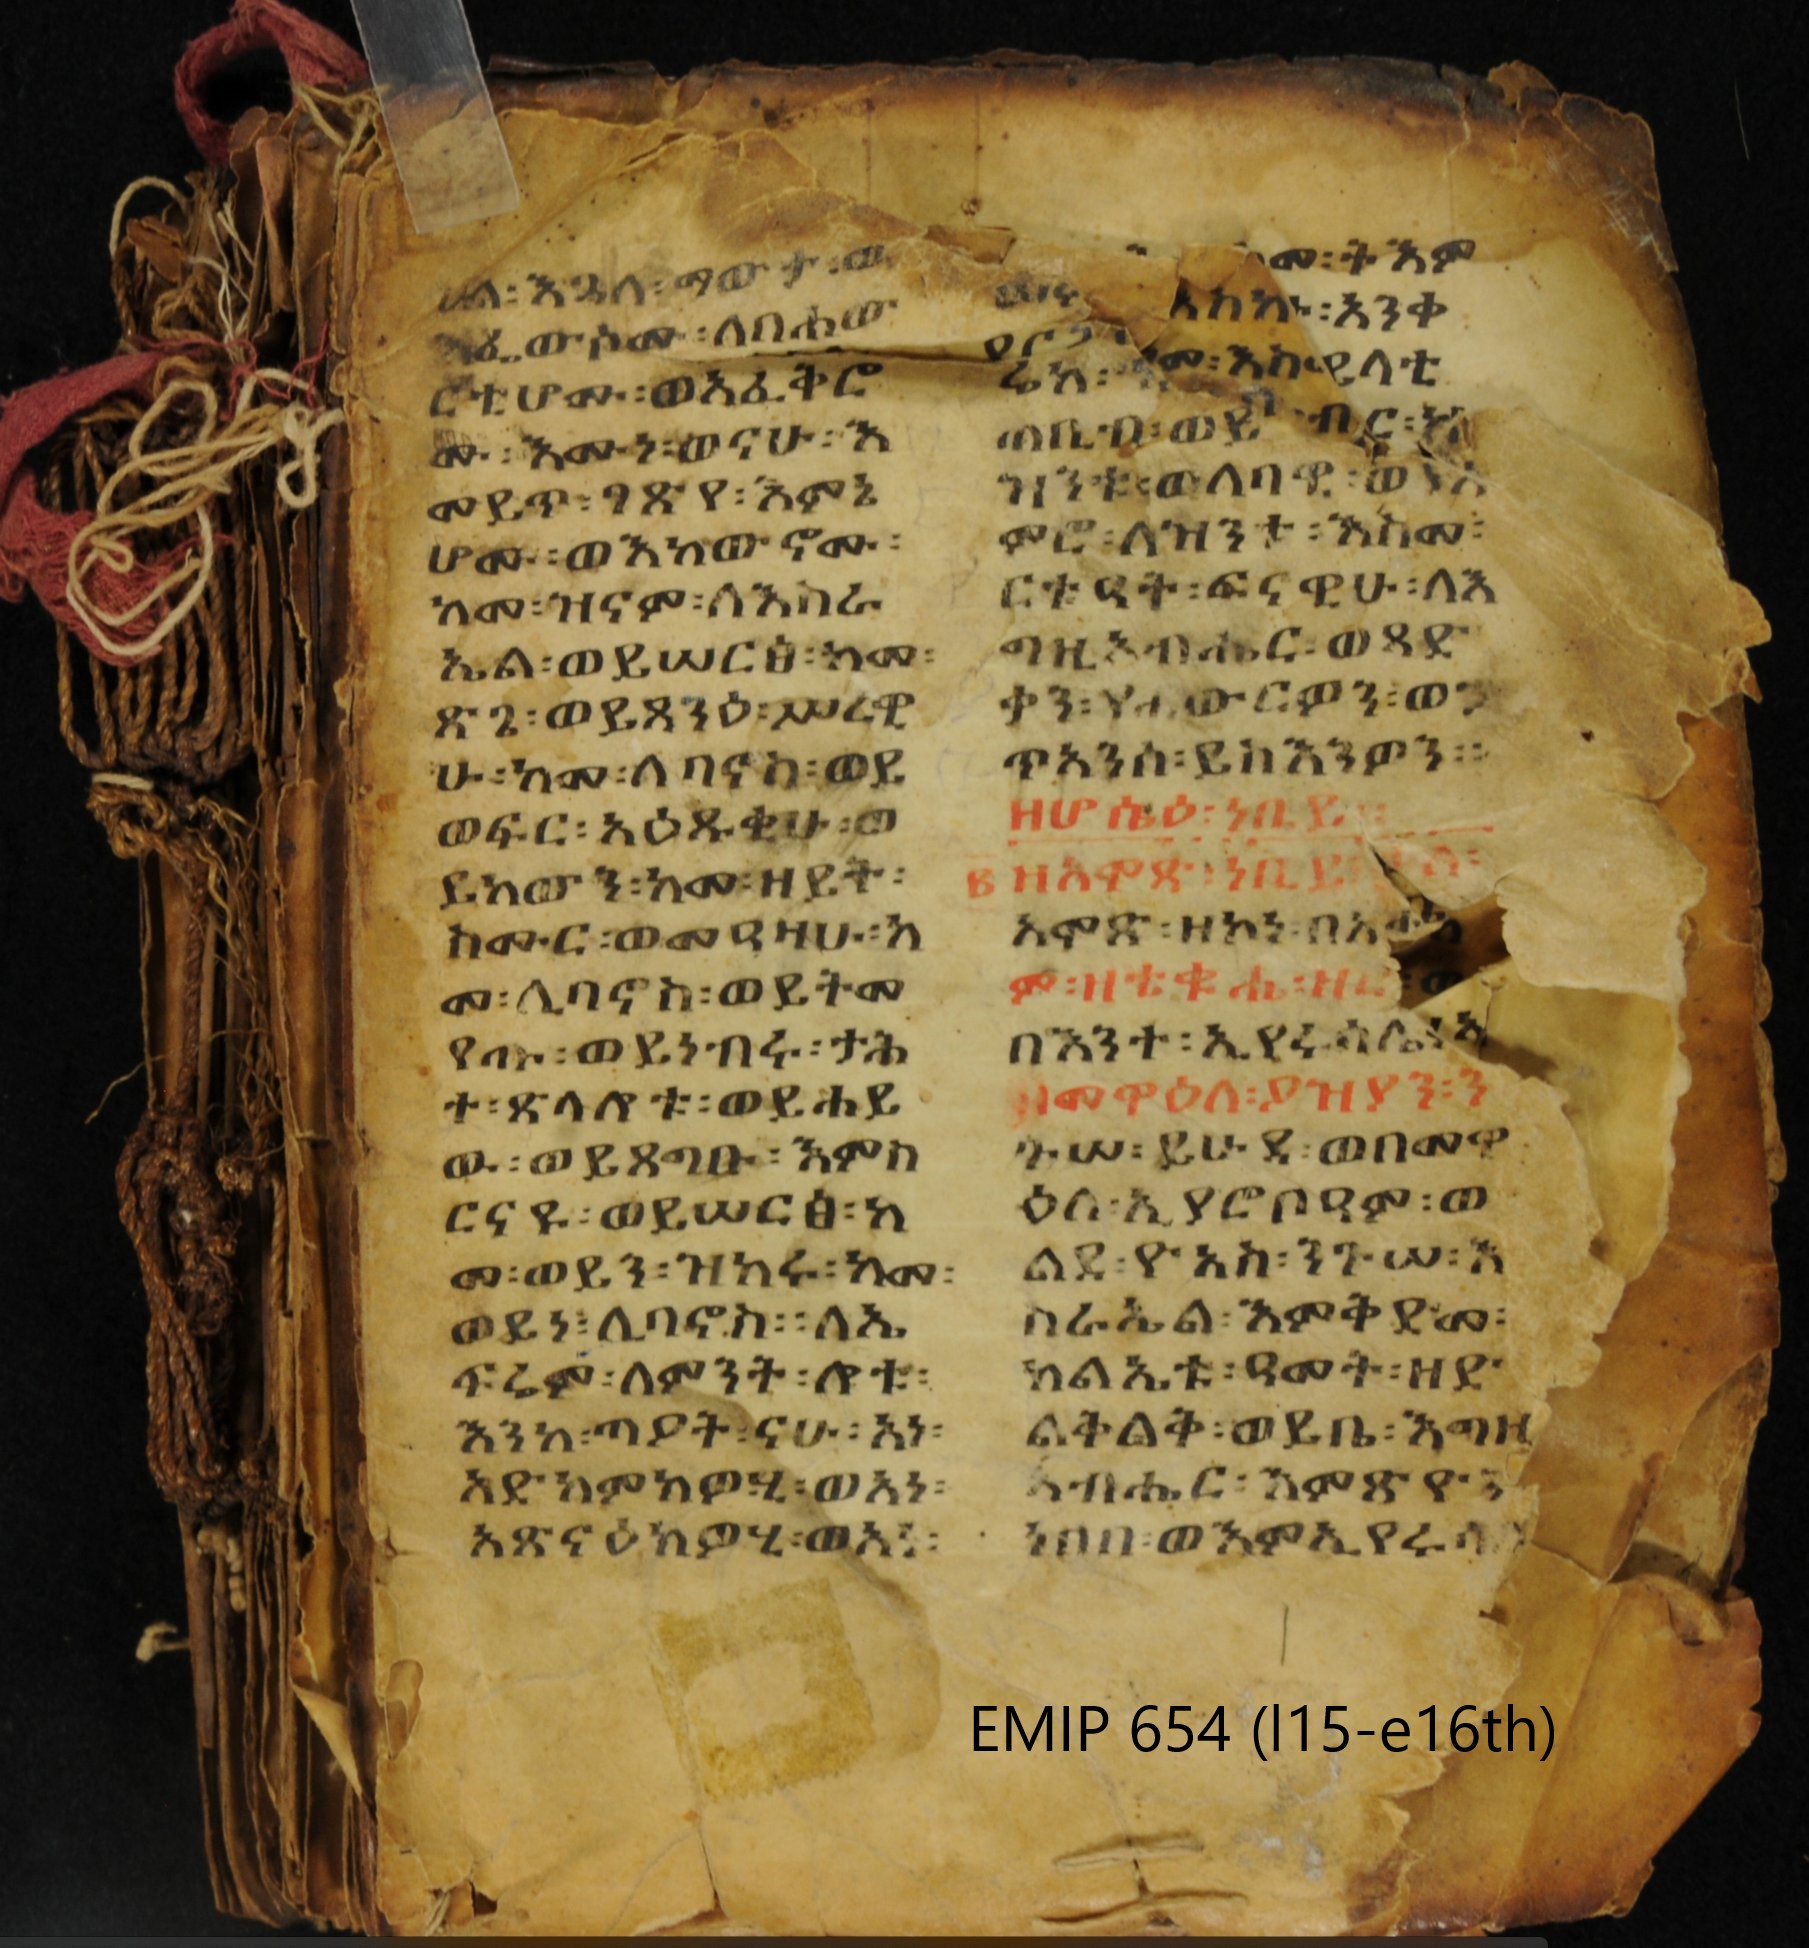 ርቲሆሙ፡ወአፈቅሮ
ሙ፡እሙነ፡ወናሁ፡እ
መይጥ፡ገጽየ፡እምኔ
ሆሙ፡ወእከውኖሙ፡
ከመ፡ዝናም፡ለእስራ
ኤል፡ወይሠርፅ፡ከመ፡
ጽጌ፡ወይጸንዕ፡ሥረዊ
ሁ፡ከመ፡ለባኖስ፡ወይ
ወፍር፡አዕጹቂሁ፡ወ
ይከውን፡ከመ፡ዘይት፡
ክሙር፡ወመዓዛሁ፡ከ
መ፡ሊባኖስ፡ወይትመ
የጡ፡ወይነብሩ፡ታሕ
ተ፡ጽላሎቱ፡ወይሐይ
ው፡ወይጸግቡ፡እምስ
ርናዩ፡ወይሠርፅ፡ከ
መ፡ወይን፡ዝክሩ፡ከመ፡
ወይነ፡ሊባኖስ፡፡ለኤ
ፍሬም፡ለምንት፡ሎቱ፡
እንከ፡ጣዖት፡ናሁ፡አነ፡
አድከምክዎሂ፡ወአነ፡
አጽናዕክዎሂ፡ወአነ፡
መ፡ትእም
ዝንቱ፡ወለባዊ
ምሮ፡ለዝንቱ፡እስመ፡
ርቱዓት፡ፍናዊሁ፡ለእ
ግዚአብሔር፡ወጻድ
ቃን፡የሐውርዎን፡ወኃ
ጥአንሰ፡ይስእንዎን፡፡
ዘሆሴዕ፡ነቢይ፡፡
፪ ዘአሞጽ፡ነቢይ
አሞጽ፡ዘኮነ፡በአቃ
ም፡ዘቴቁሔ፡ዘር
በእንተ፡ኢየሩሳሌም
በመዋዕለ፡ዖዝያን፡ን
ጉሠ፡ይሁዳ፡ወበመዋ
ዕለ፡ኢያሮቦዓም፡ወ
ልደ፡ዮአስ፡ንጉሠ፡እ
ስራኤል፡እምቅድመ፡
ክልኤቱ፡ዓመት፡ዘድ
ልቅልቅ፡ወይቤ፡እግዚ
አብሔር፡እምጽዮን
ነበበ፡ወእምኢየሩሳ
EMIP 654 (l15-e16th)